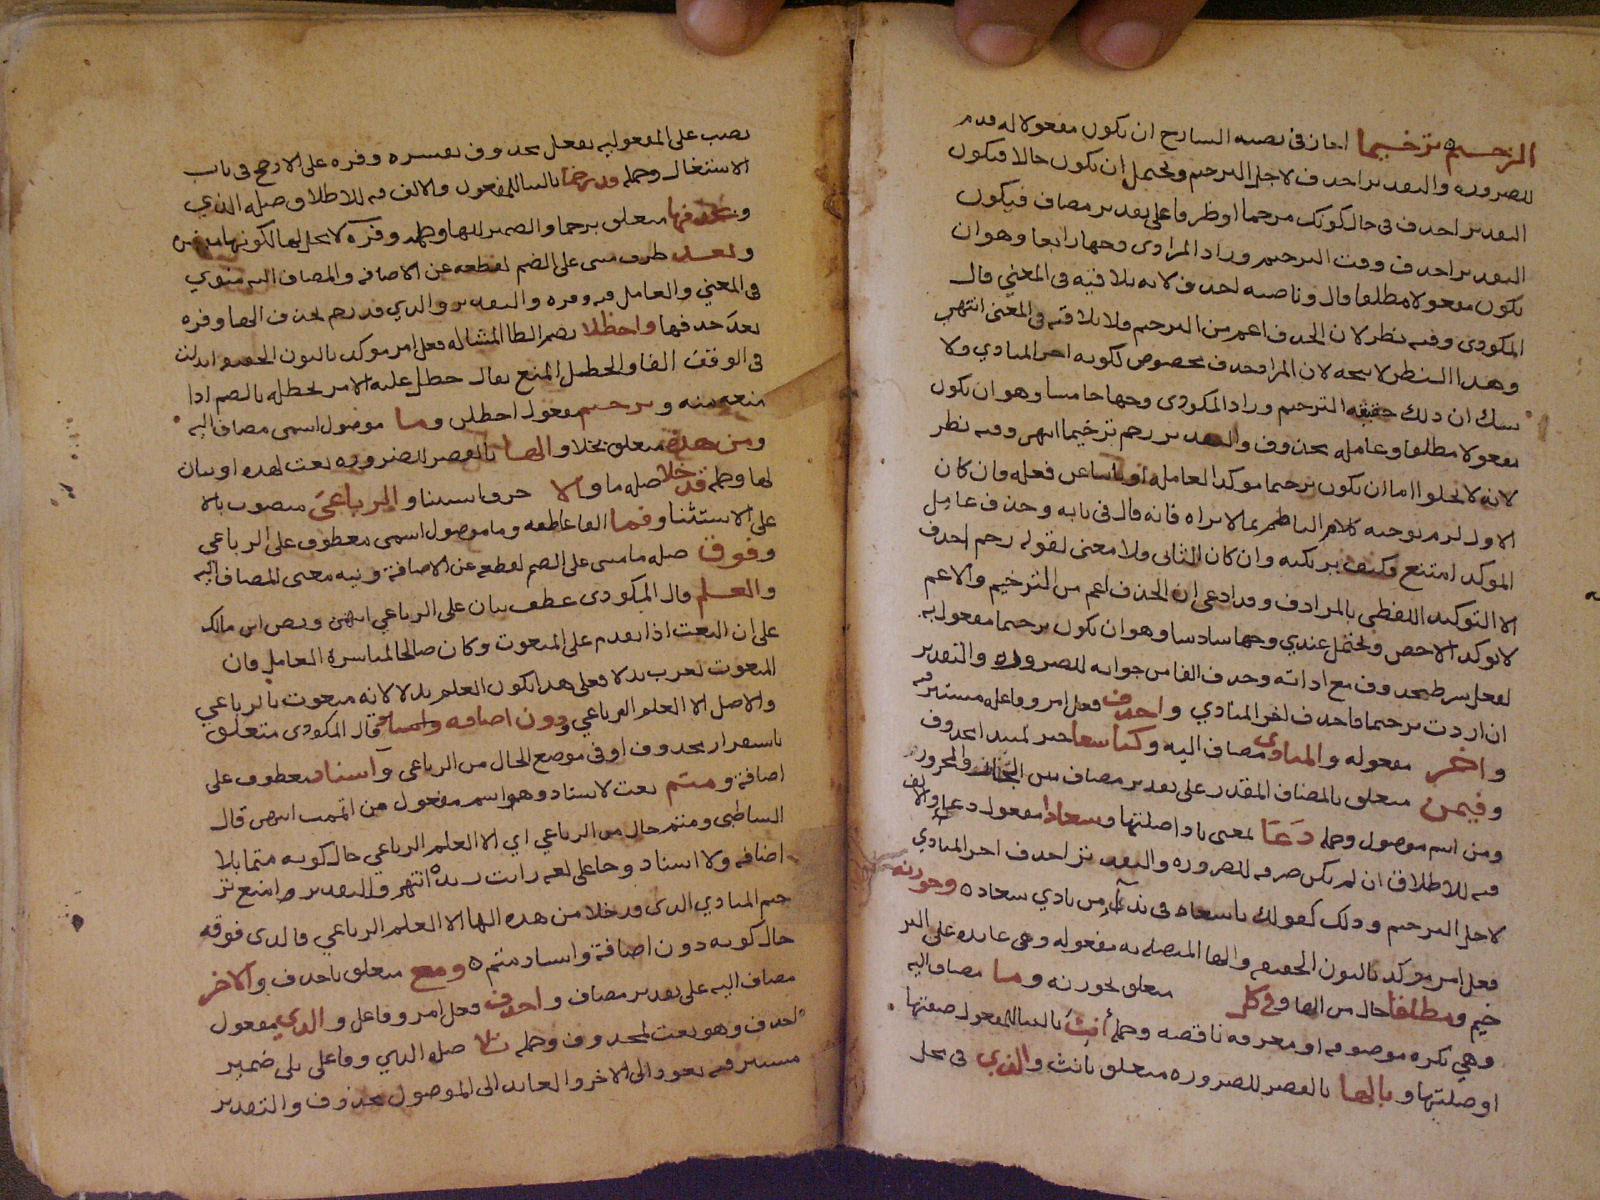 الترخيم ترخيما اجاز في نصبه الشارح ان يكون مفعولا له قدم
للضرورة والتقدير احذف لاجل الترخيم ويحتمل ان يكون حالا فيكون
التقدير احذف في حال كونك مرخما او ظرفا على تقدير مضاف فيكون
التقدير احذف وقت الترخيم وزاد المرادي وجها رابعا وهو ان
يكون مفعولا مطلقا قال وناصبه احذف لانه يلاقيه في المعني قال
المكودي وفيه نظر لان الحذف اعم من الترخيم فلا يلاقيه في المعنى انتهى
وهذا النظر لا يتجه لان المراد حذف مخصوص لكونه اخر المنادي ولا
شك ان ذلك حقيقة الترخيم وزاد المكودي وجها خامسا وهو ان يكون
مفعولا مطلقا وعامله محذوف والتقدير رخم ترخيما انتهى وفيه نظر
لانه لا يخلوا اما ان يكون ترخيما موكدا لعامله او نائبا عن فعله فان كان
الاول لزم توجيه كلام الناظم بما لا يراه فانه قال في بابه وحذف عامل
الموكد امتنع فكيف يرتكبه وان كان الثانى فلا معنى لقوله رخم احذف
الا التوكيد اللفظي بالمرادف وقد ادعى ان الحذف اعم من الترخيم والاعم
لا يوكد الاخص ويحتمل عندي وجها سادسا وهو ان يكون ترخيما مفعولا به
لفعل شرط محذوف مع اداته وحذف الفا من جوابه للضرورة والتقدير
ان اردت ترخيما فاحذف اخر المنادي واحذف فعل امر وفاعله مستتر فيه
واخر مفعوله والمنادى مضاف اليه وكياسعا خبر لمبتدا محذوف
وفيمن متعلق بالمضاف المقدر على تقدير مضاف بين الجار والمجرور
ومن اسم موصول وجملة دعا بمعنى نادا صلتها وسعادا مفعول دعا والالف
فيه للاطلاق ان لم يكن صرفه للضرورة والتقدير احذف اخر المنادي
لاجل الترخيم وذلك كقولك ياسعاد في نداء من ينادي سعاد ه وجوزنه
فعل امر موكد بالنون الخفيفة والها المتصلة به مفعوله وهي عايدة على التر
خيم ومطلقا حال من الها وفي كل متعلق بجوزنه وما مضاف اليه
وهي نكرة موصوفه او معرفه ناقصه وجملة أنث بالبنا للمفعول صفتها
او صلتها وبالها بالقصر للضرورة متعلق بانث والذي في محل
نصب على المفعولية بفعل محذوف يفسره وفره على الارجح في باب
الاشتغال وجملة قد رخما بالبنا للمفعول والالف فيه للاطلاق صلة الذي
وبحذفها متعلق برخما والضمير للها وجملة وفره لا محل لها لكونها مفسرة
وبعد ظرف مبنى على الضم لقطعه عن الاضافه والمضاف اليه منوي
في المعني والعامل فيه وفره والتقدير والذي قد رخم بحذف الها وفره
بعد حذفها واحظلا بضم الظا المشاله فعل امر موكد بالنون الخفيفه ابدلت
في الوقف الفا والحظل المنع يقال حظل عليه الامر يحظله بالضم اذا
منعه منه وترخيم مفعول احظلن وما موصول اسمى مضاف اليه
ومن هذه متعلق بخلا والها بالقصر للضروره نعت لهذه او بيان
لها وجملة قد خلا صلة ما والا حرف استثنا والرباعي منصوب بالا
على الاستثنا وفما الفا عاطفه وما موصول اسمى معطوف على الرباعي
وفوق صلة ما مبنى على الضم لقطعه عن الاضافة ونيه معنى المضاف اليه
والعلم قال المكودى عطف بيان على الرباعي انتهى ونص ابن مالك
على ان النعت اذا تقدم على المنعوت وكان صالحا لمباشرة العامل فان
المنعوت يعرب بدلا فعلى هذا يكون العلم بدلا لانه منعوت بالرباعي
والاصل الا العلم الرباعي ودون اضافه واسناد قال المكودى متعلق
باستقرار محذوف او في موضع الحال من الرباعى وآسناد معطوف على
اضافة ومتم نعت لاسناد وهو اسم مفعول من اتممت انتهى قال
الشاطبى ومتم حال من الرباعي اي الا العلم الرباعي حال كونه متما بلا
اضافه ولا اسناد وجا على لغه رايت زيد انتهى والتقدير وامنع تر
خيم المنادي الذى قد خلا من هذه الها الا العلم الرباعي فالذى فوقه
حال كونه دون اضافة واسناد متم ه ومع متعلق باحذف والاخر
مضاف اليه على تقدير مضاف واحذف فعل امر وفاعل والذي مفعول
احذف وهو نعت لمحذوف وجملة تلا صلة الذي وفاعل تلى ضمير
مستتر فيه يعود الى الاخر والعايد الى الموصول محذوف والتقدير